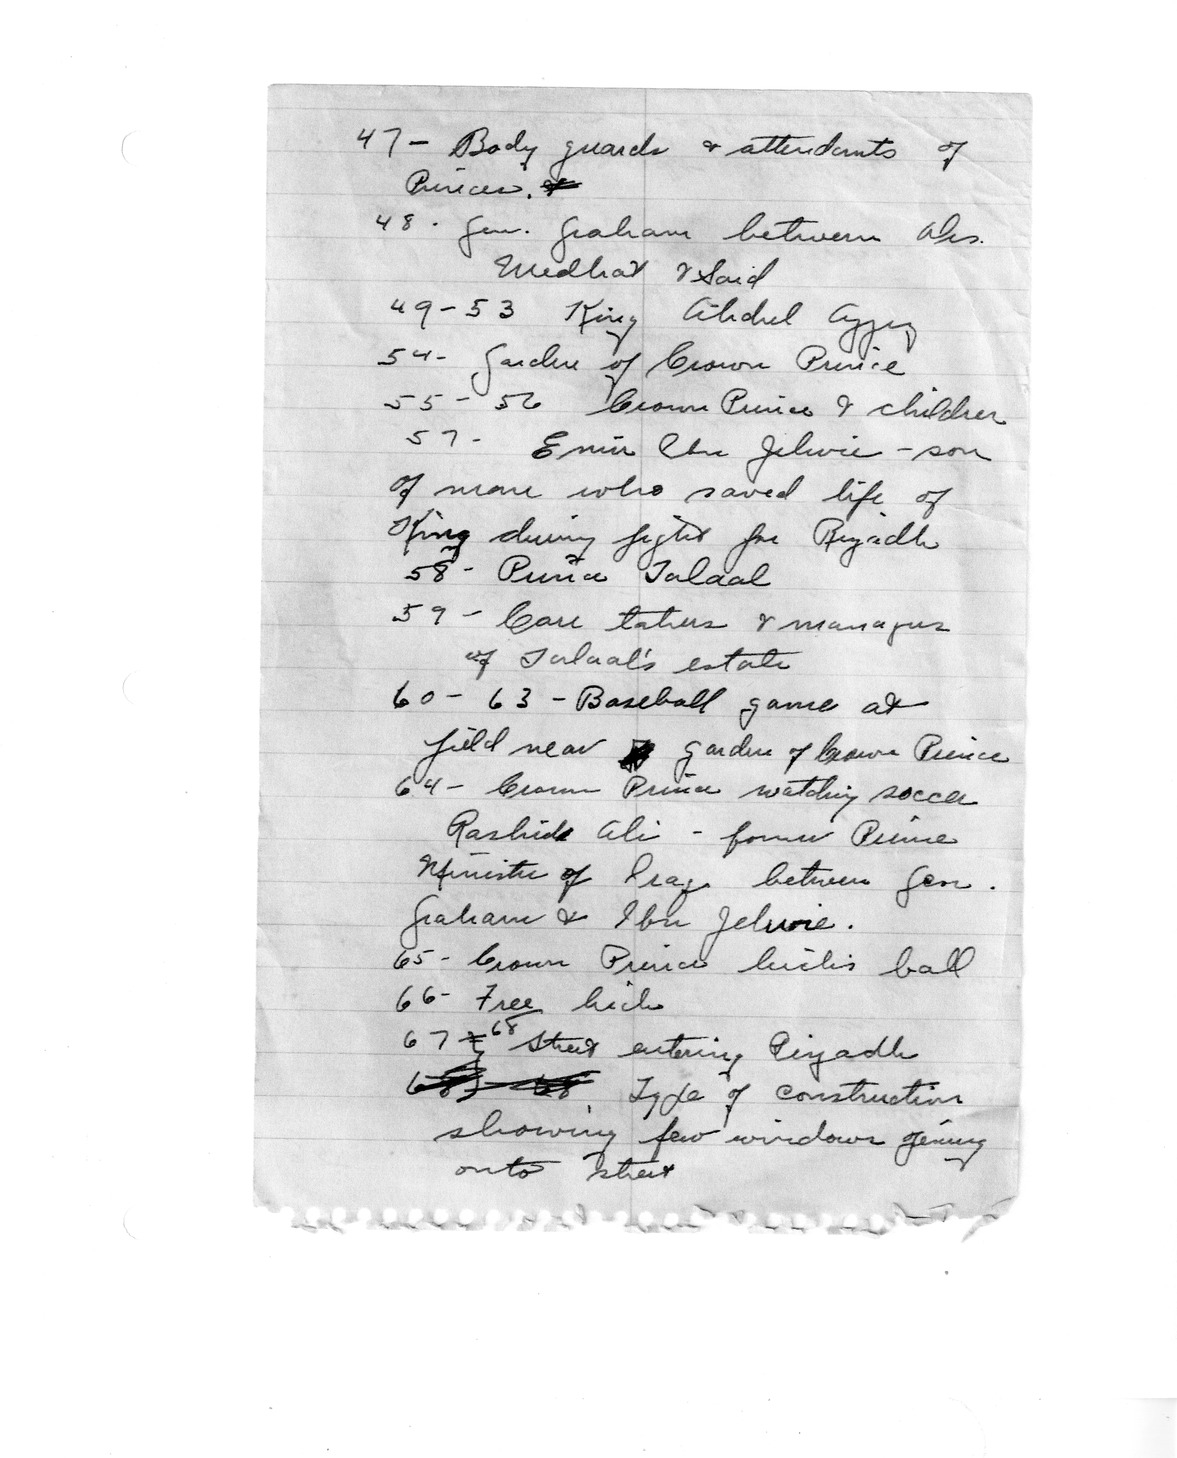 47- Body guards & attendants of
Princes.
48. Gen. Graham between Drs.
Medhat & Said
49-53 King Abdul Azziz
54- Garden of Crown Prince
55-56 Crown Prince & children
57- Emir Ibn Jelwie - son
of man who saved life of
King during fight for Riyadh
58- Prince Talaal
59- Care takers & managers
of Talaal's estate
60-63-Baseball game at
field near garden of Crown Prince
64- Crown Prince watching soccer
Rashid Ali - former Prime
Minister of Iraq between Gen.
Graham & Ibn Jelwie.
65- Crown Prince kicks ball
66- Free kick
67 & 68 Street entering Riyadh
Type of construction
showing few windows opening
onto street